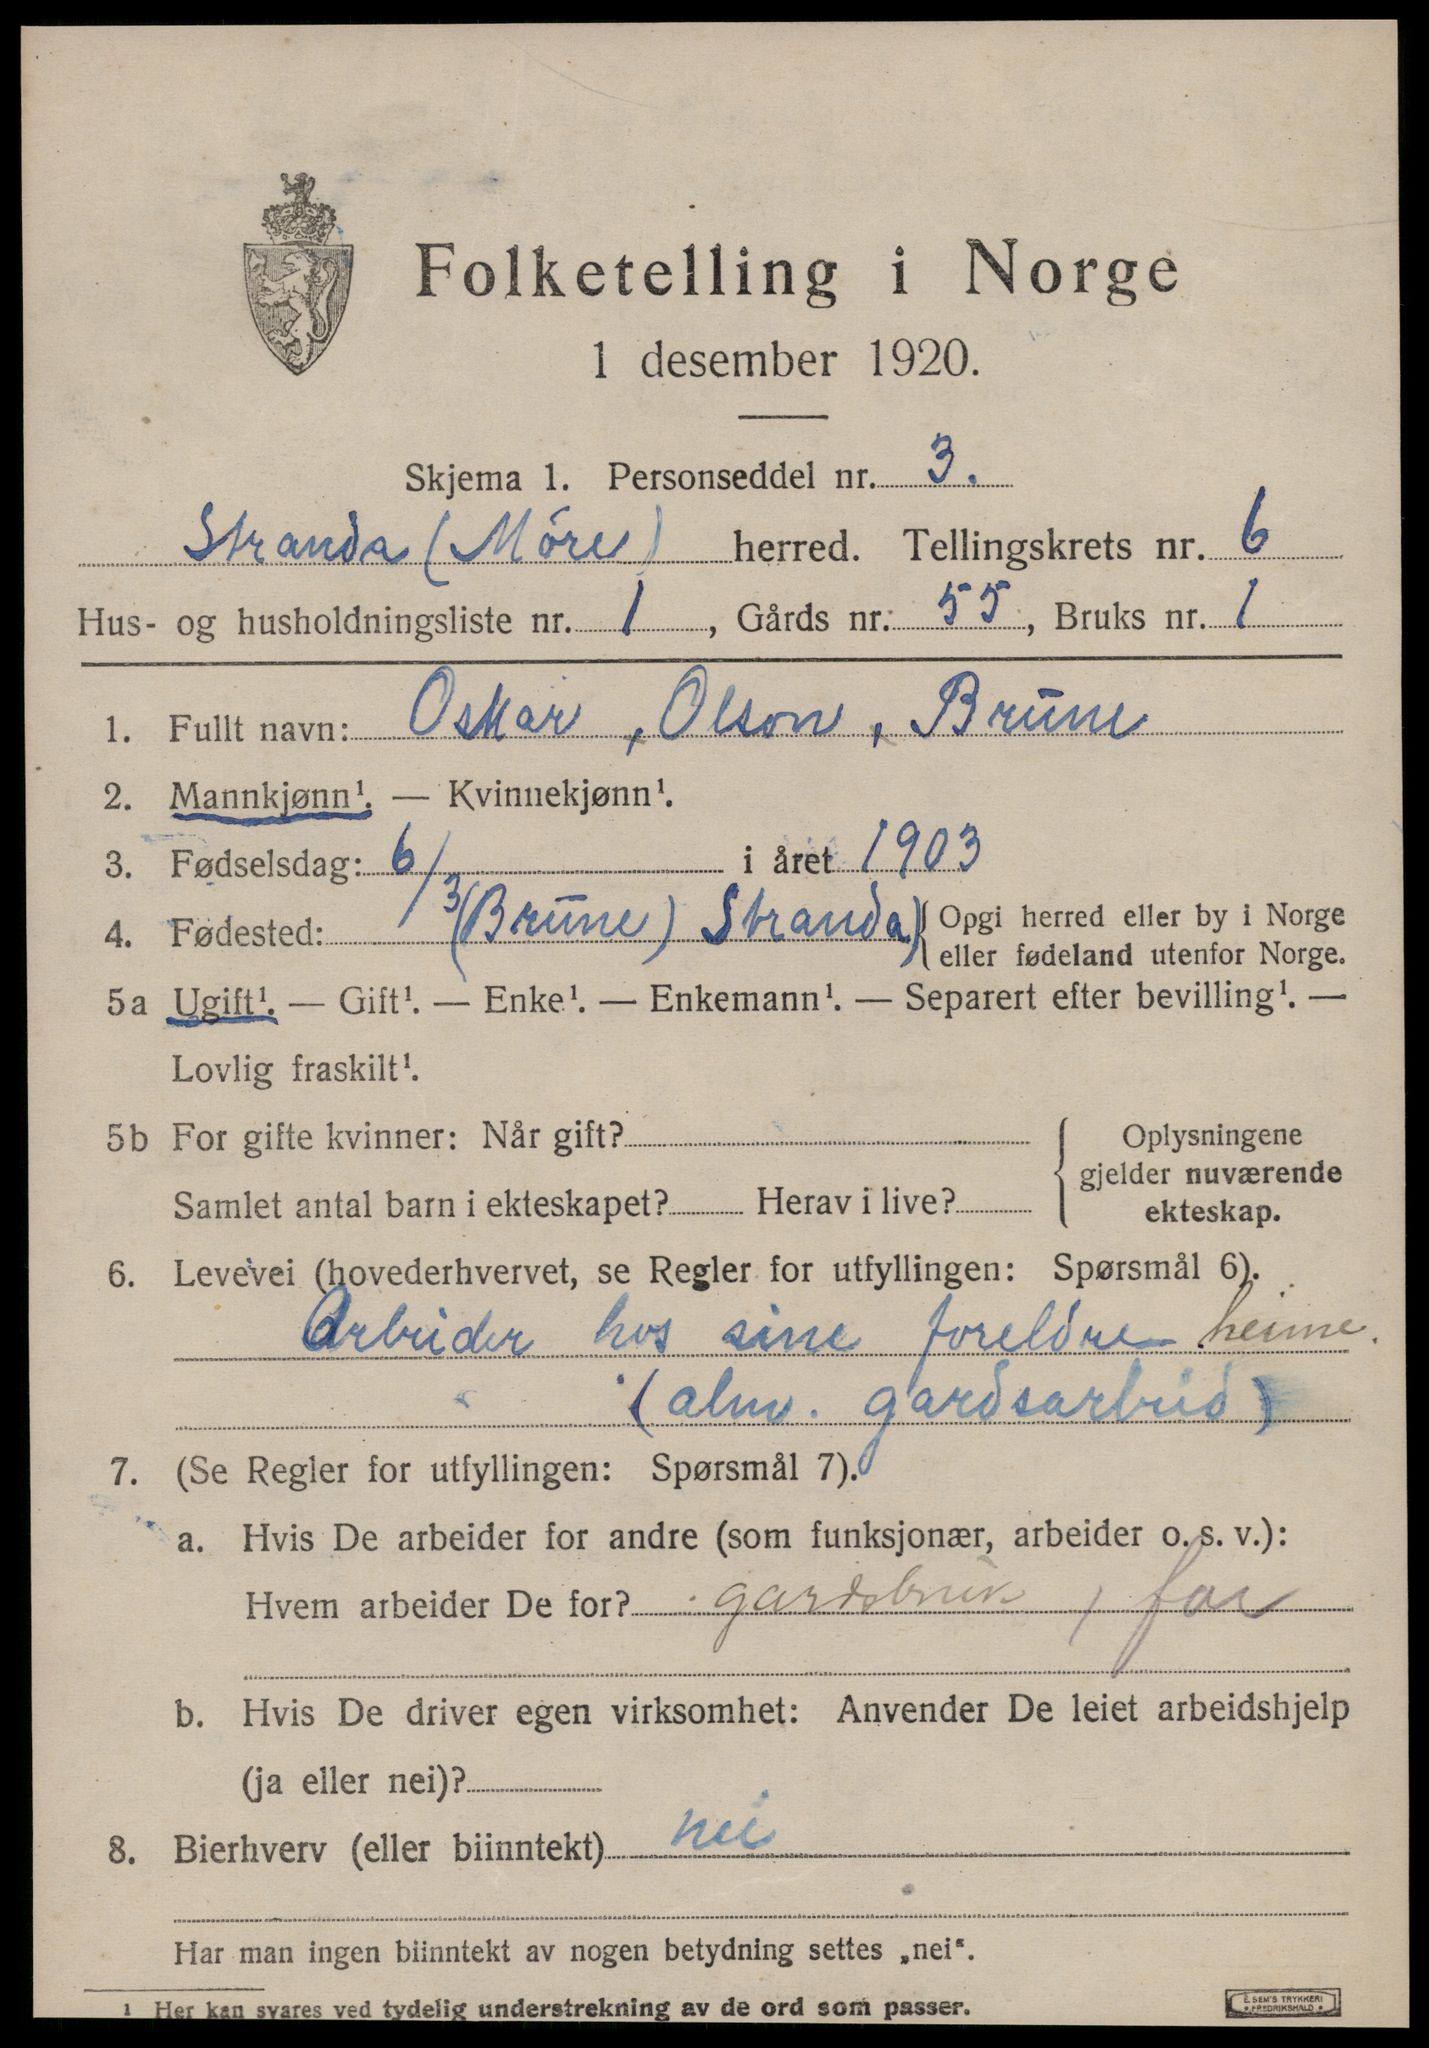 Folketelling i Norge
1 desember 1920.
Skjema 1. Personseddel nr. 3.
Stranda (Möre) herred. Tellingskrets nr. 6
Hus- og husholdningsliste nr. 1, Gårds nr. 55, Bruks nr. 1
1. Fullt navn: Oskar, Olson, Brūne
2. Mannkjønn¹. — Kvinnekjønn¹.
3. Fødselsdag: 6/3 i året 1903
4. Fødested: (Brūne) Stranda) { Opgi herred eller by i Norge
eller fødeland utenfor Norge.
5a Ugift¹. — Gift¹. — Enke¹. — Enkemann¹. — Separert efter bevilling¹. —
Lovlig fraskilt¹.
5b For gifte kvinner: Når gift?
Samlet antal barn i ekteskapet? Herav i live?
{ Oplysningene
gjelder nuværende
ekteskap.
6. Levevei (hovederhvervet, se Regler for utfyllingen: Spørsmål 6).
Arbeider hos sine foreldre heime.
(alm. gardsarbeid)
7. (Se Regler for utfyllingen: Spørsmål 7).
a. Hvis De arbeider for andre (som funksjonær, arbeider o. s. v.):
Hvem arbeider De for? gardsbruk, far
b. Hvis De driver egen virksomhet: Anvender De leiet arbeidshjelp
(ja eller nei)?
8. Bierhverv (eller biinntekt) nei
Har man ingen biinntekt av nogen betydning settes „nei“.
¹ Her kan svares ved tydelig understrekning av de ord som passer.
E. SEM'S TRYKKERI
FREDRIKSHALD